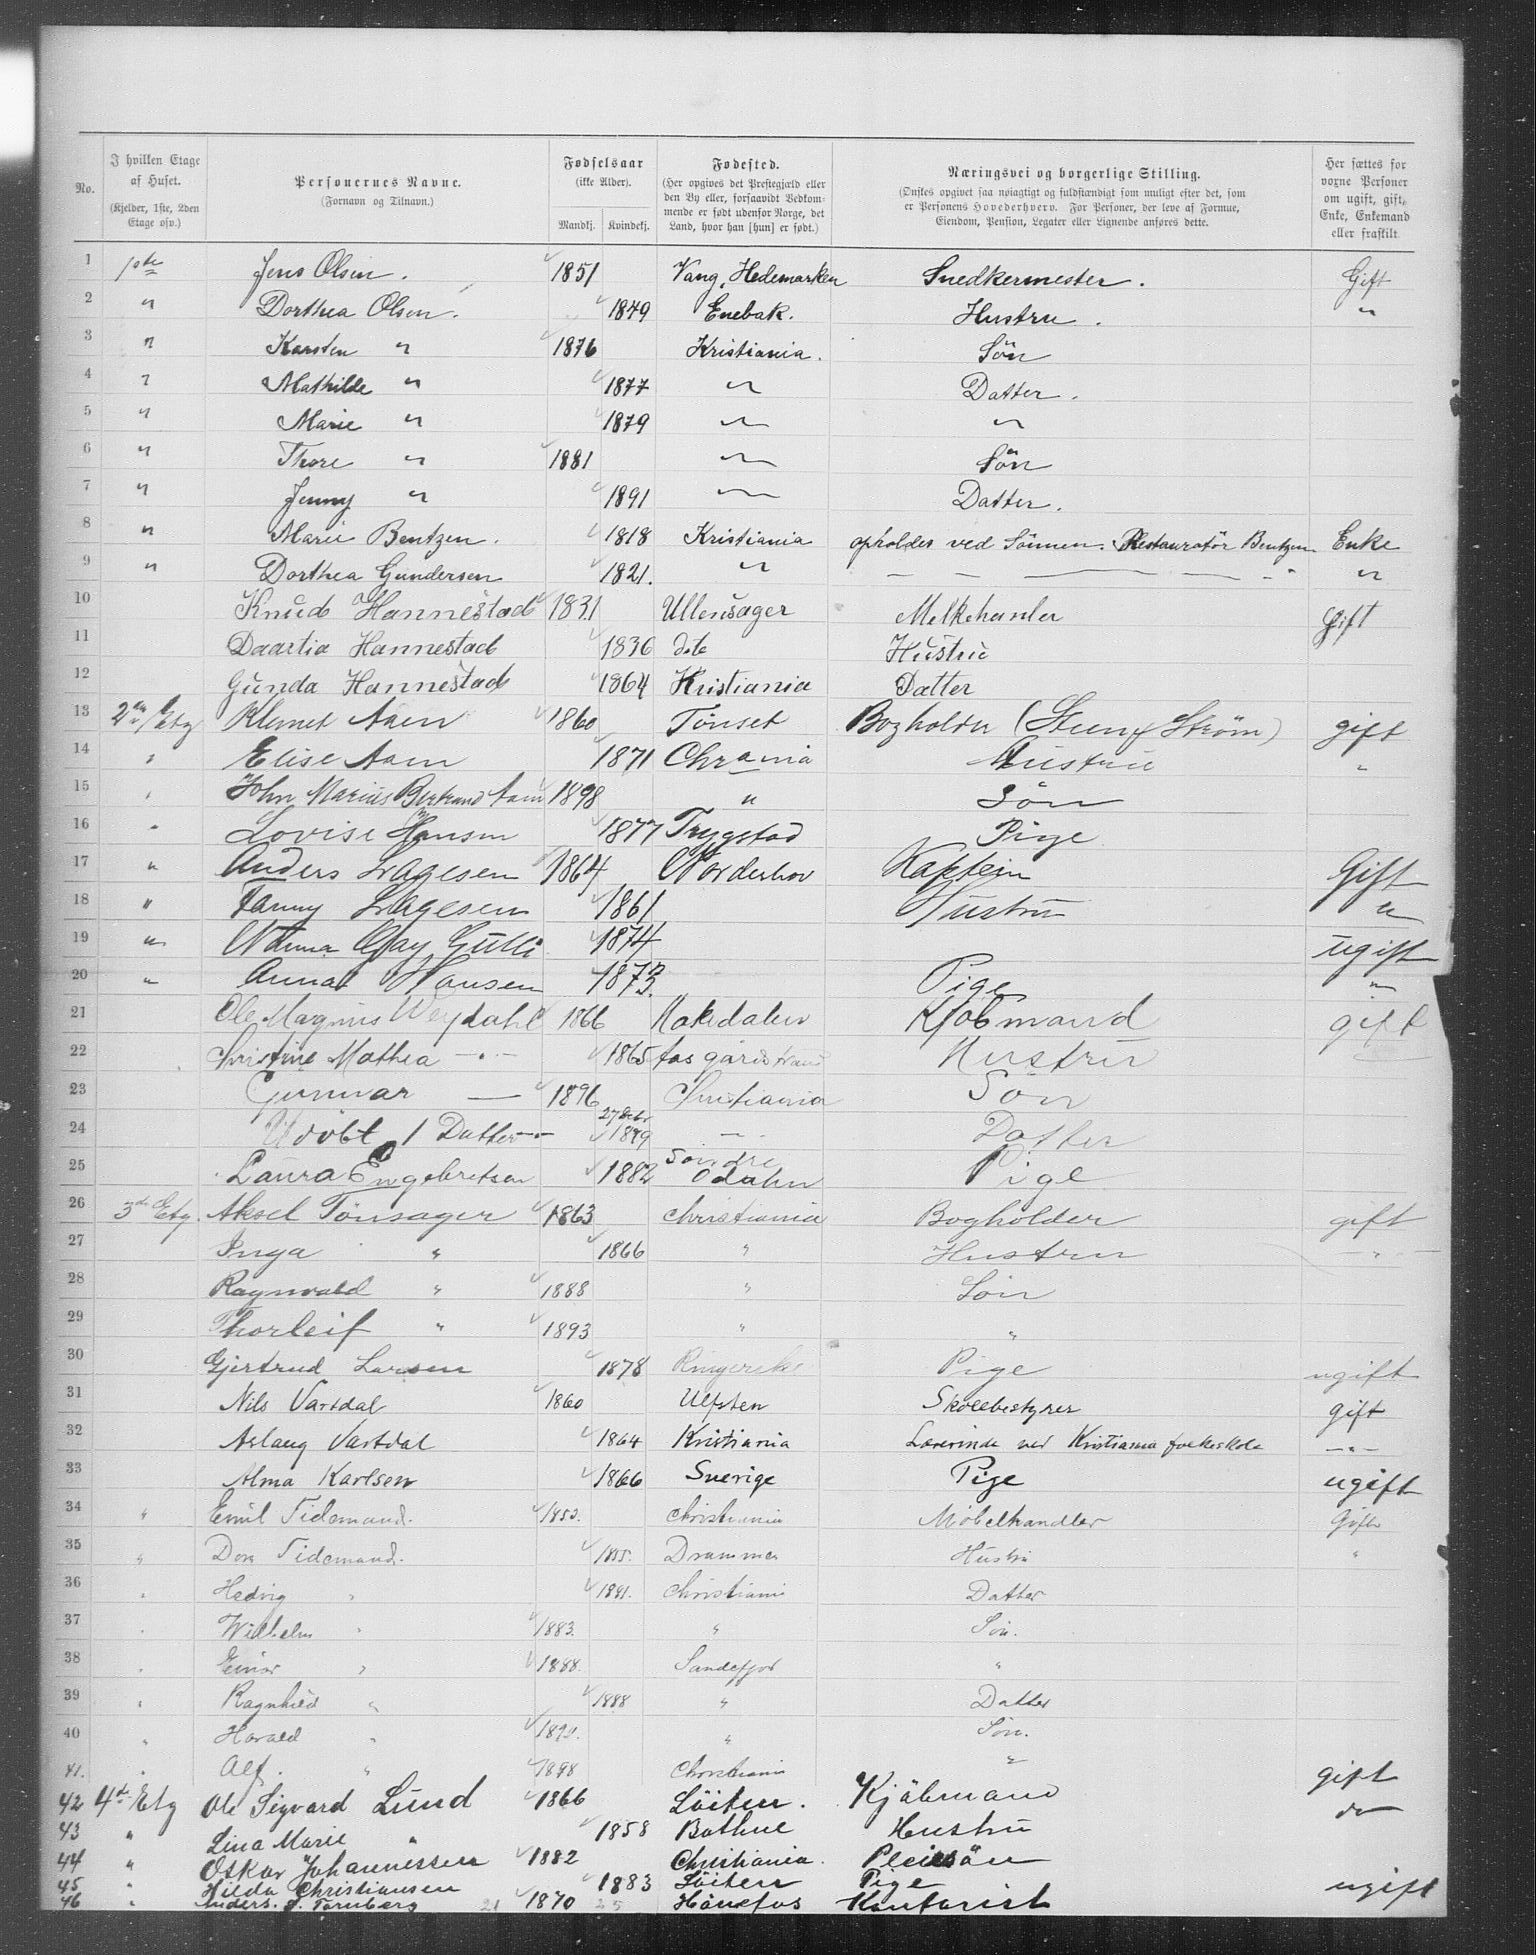 No. | I hvilken Etage af Huset. (Kjelder, 1ste, 2den Etage osv.) | Personernes Navne. (Fornavn og Tilnavn.) | Fødselsaar (ikke Alder). Mandkj. Kvindekj. | Fødested. (Her opgives det Præstegjæld eller den By eller, forsaavidt Vedkommende er født udenfor Norge, det Land, hvor han [hun] er født.) | Næringsvei og borgerlige Stilling. (Ønskes opgivet saa nøiagtigt og fuldstændigt som muligt efter det, som er Personens Hovederhverv. For Personer, der leve af Formue, Eiendom, Pension, Legater eller Lignende anføres dette. | Her sættes for voxne Personer om ugift, gift, Enke, Enkemand eller fraskilt.
1 1ste Jens Olsen. 1851 Vang, Hedemarken Snedkermester. Gift
2 " Dorthea Olsen. 1849 Enebak. Hustru. "
3 " Karsten " 1876 Kristiania. Sön
4 " Mathilde " 1877 " Datter.
5 " Marie " 1879 " "
6 " Thore " 1881 " Sön
7 " Jenny " 1891 " Datter.
8 " Marie Bentzen. 1818 Kristiania opholdes ved Sönnen. Restauratör Bentzen Enke
9 " Dorthea Gundersen 1821. " — — — — — " "
10 Knud Hannestad 1831 Ullensager Melkehanler Gift
11 Daartia Hannestad 1836 dto Hustru
12 Gunda Hannestad 1864 Kristiania Datter
13 2en Etg Klemet Aaen 1860 Tönset Bogholder (Steen & Strøm) gift
14 " Elise Aaen 1871 Chrania Hustru "
15 " John Marius Bertrand Aaen 1898 " Sön
16 " Lovise Hansen 1877 Trygstad Pige
17 " Anders Lagesen 1864 Norderhov Kaptein Gift
18 " Fanny Lagesen 1861 Hustru "
19 " Gay Gulli 1874 ugift
20 " Anna Hansen 1873. Pige "
21 Ole Magnus Weydahl 1866 Nakedalen Kjöbmand gift
22 Christine Mathea — " — 1865 Hustru
23 Gunnar — 1896 Christiania Sön
24 Udöbt 1 Datter — " 27 Octbr 1899 — " Datter
25 Laura Engebretsen 1882 Söndre Odahn Pige
26 3de Etg. Aksel Tönsager 1863 Christiania Bogholder gift
27 Inga " 1866 " Hustru — " —
28 Ragnvald " 1888 " Sön
29 Thorleif " 1893 " "
30 Gjertrud Larsen 1878 Ringerike Pige ugift
31 Nils Vartdal 1860 Ulfsten Skolebestyrer gift
32 Aslaug Vartdal 1864 Kristiania Lærerinde ved Kristiania folkeskole — " —
33 Alma Karlsen 1866 Sverige Pige ugift
34 " Emil Tidemand. 1853. Christiania Möbelhandler Gift
35 " Tidemand. 1855. Drammen Hustru "
36 " Hedvig " Christiania Datter
37 " Wilhelm " 1883. " Sön.
38 " Einar " 1888. Sandefjord "
39 " Ragnhild " 1888 " Datter
40 " Harald " " Sön.
41. " Alf. " 1898 Christiania " 
42 4de Etg Ole Sigvard Lund 1866 Löiten. Kjöbmand gift
43 " Lina Marie " 1858 Bathue Hustru do
44 " Oskar Johannessen 1882 Christiania. Pleiesön
45 " Hilda Christiansen 1883 Löiten Pige ugift
46 " Anders. J. Tornberg 21 1870 25 Hönefos Kontorist